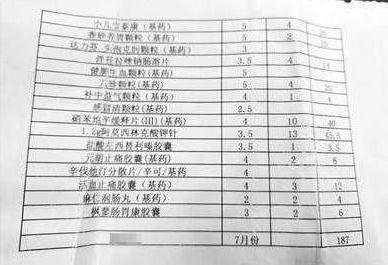 小儿宝泰康（基药） 5 4
香砂养胃颗粒（基药） 5 2
达力芬 头孢克肟颗粒（基药） 3
泮托拉唑钠肠溶片 3.5 4 14
健脾生血颗粒(基药) 5
八珍颗粒(基药) 5 4
补中益气颗粒（基药） 4 1
感冒清颗粒(基药) 2.5
硝苯地平缓释片(III)(基药) 4 10 40
1.2g阿莫西林克酸钾针 3.5 13 45.5
盐酸左西替利嗪胶囊 3.5 1 3.5
元胡止痛胶囊（基药） 4 2 8
辛伐他汀分散片/辛可/基药 4
活血止痛胶囊（基药） 4 3 12
麻仁润肠丸（基药） 2 2 4
枫蓼肠胃康胶囊 3 2 6
7月份 187